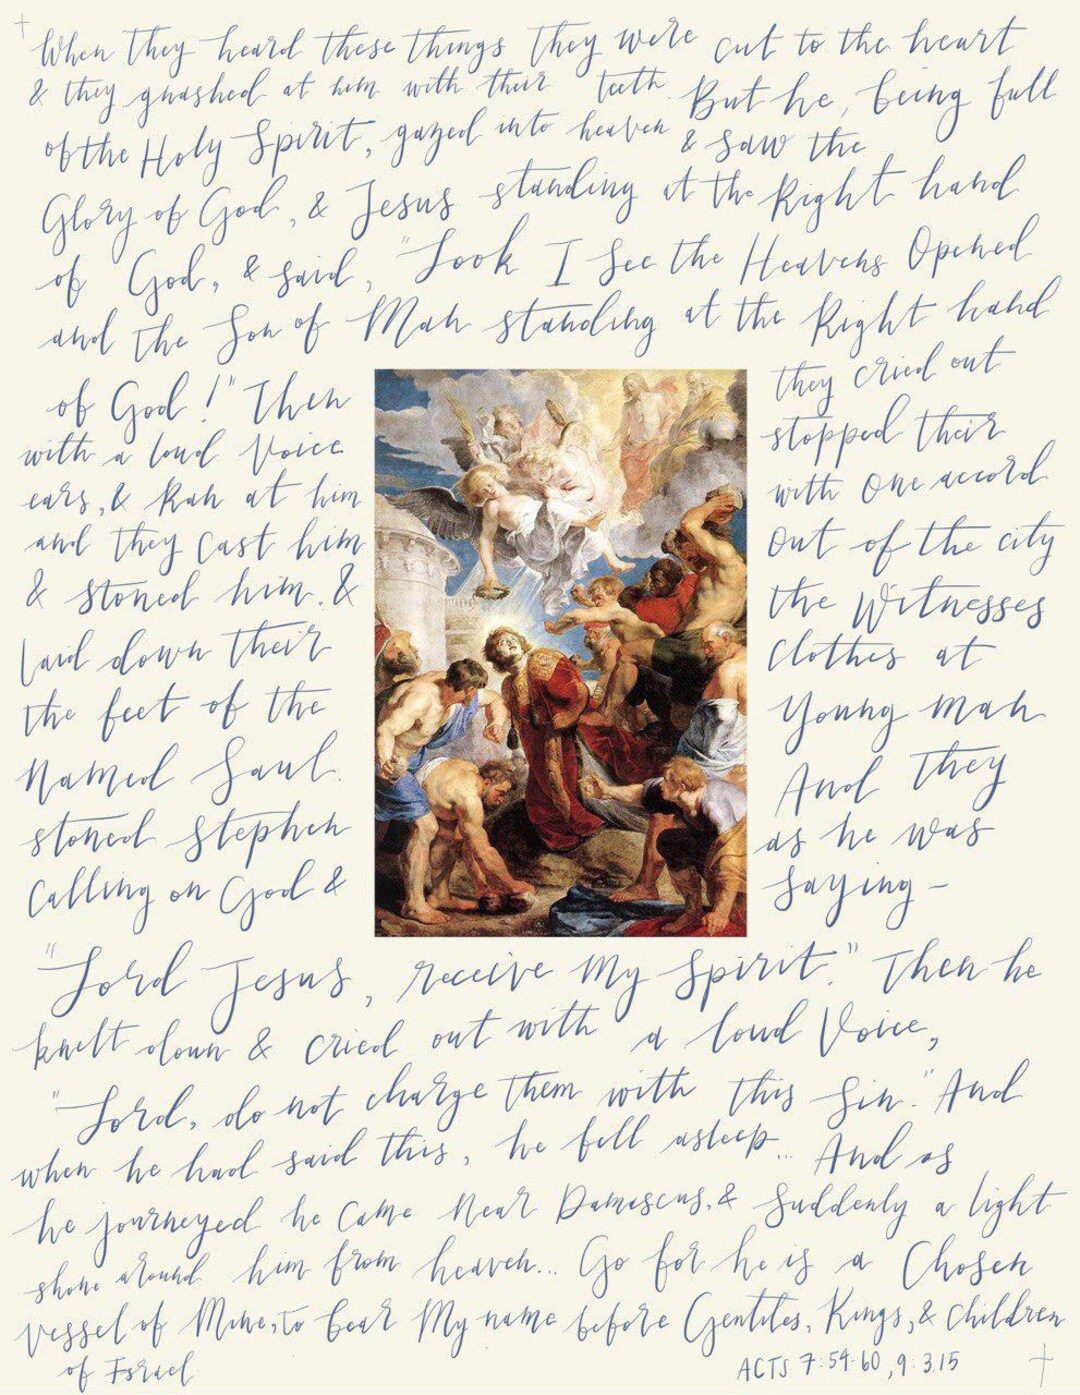 When they heard these things they were cut to the heart
& they gnashed at him with their teeth. But he, being full
of the Holy Spirit, gazed into heaven & saw the
Glory of God, & Jesus standing at the Right hand
of God, & said, "Look I see the Heavens Opened
and the Son of Man standing at the Right hand
of God!" Then they cried out
with a loud Voice stopped their
ears, & Ran at him with one accord
and they cast him out of the city
& stoned him. & the Witnesses
laid down their clothes at
the feet of the Young man
Named Saul. And they
stoned Stephen as he was
Calling on God & saying -
"Lord Jesus, receive My Spirit." Then he
knelt down & cried out with a loud Voice,
"Lord, do not charge them with this Sin." And
when he had said this, he fell asleep... And as
he journeyed he came Near Damascus, & Suddenly a light
shone around him from heaven... Go for he is a Chosen
vessel of Mine, to bear My name before Gentiles, Kings, & children
of Israel
ACTS 7:54-60, 9:3,15